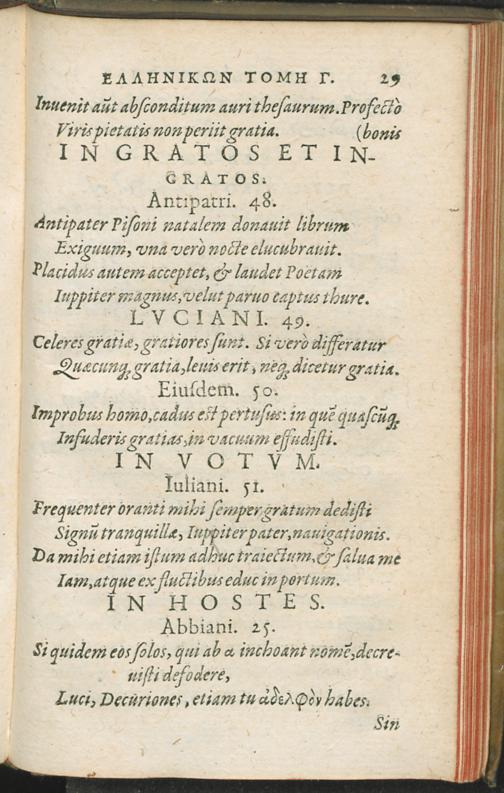 ΕΛΛΗΝΙΚΩΝ ΤΟΜΗ Γ. 29
Invenit aũt absconditum auri thesaurum. Profectò
Viris pietatis non periit gratia. (bonis
IN GRATOS ET IN-
GRATOS.
Antipatri. 48.
Antipater Pisoni natalem donauit librum
Exiguum, vna verò nocte elucubrauit.
Placidus autem acceptet, & laudet Poëtam
Iuppiter magnus, velut paruo captus thure.
LVCIANI. 49.
Celeres gratiæ, gratiores sunt. Si verò differatur
Quæcunq; gratia, leuis erit, neq; dicetur gratia.
Eiusdem. 50.
Improbus homo, cadus est pertusus: in quẽ quascũq;
Infuderis gratias, in vacuum effudisti.
IN VOTVM.
Iuliani. 51.
Frequenter oranti mihi semper gratum dedisti
Signũ tranquillæ, Iuppiter pater, nauigationis.
Da mihi etiam istum adhuc traiectum, & salua me
Iam, atque ex fluctibus educ in portum.
IN HOSTES.
Abbiani. 25.
Si quidem eos solos, qui ab α inchoant nomẽ, decre-
uisti defodere,
Luci, Decuriones, etiam tu ἀδελφὸν habes.
Sin